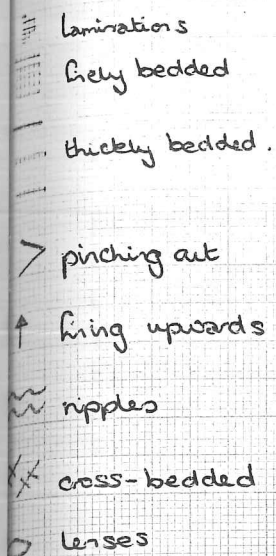 laminations
finely bedded
thickly bedded.
pinching out
fining upwards
ripples
cross-bedded
lenses